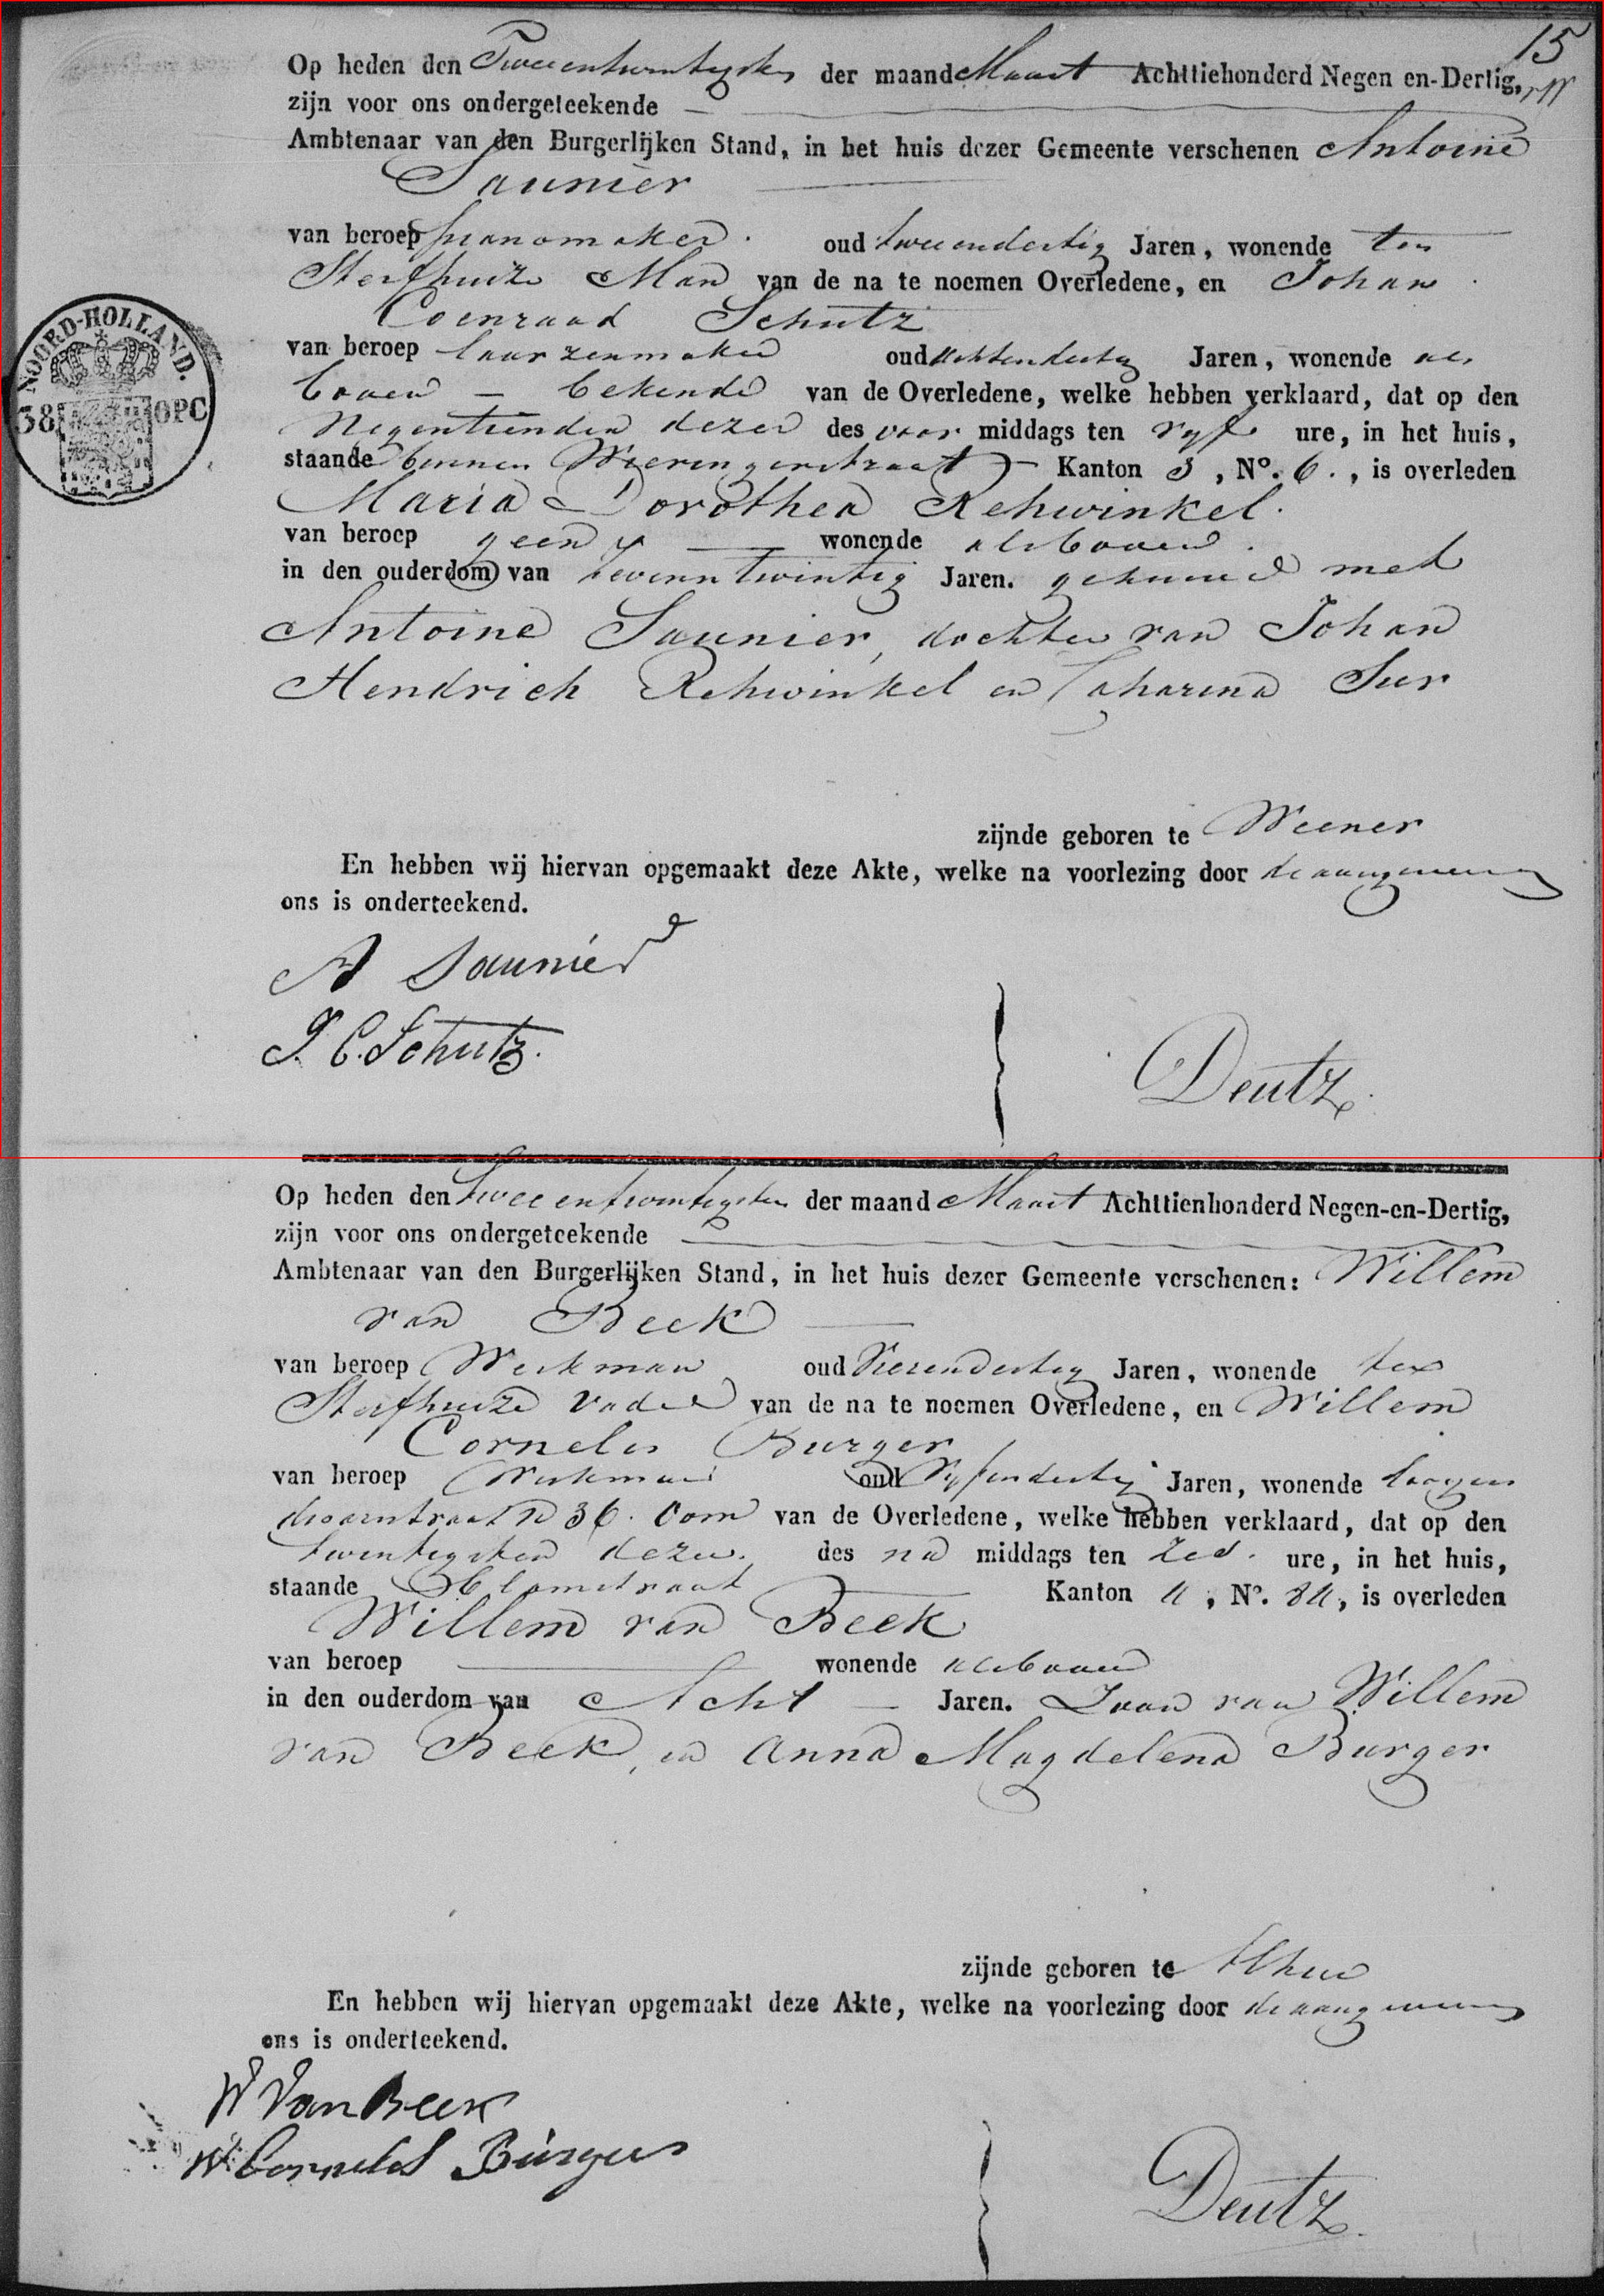 15
Op heden den Tweeentwintigsten der maand Maart Achttiehonderd Negen en-Dertig,
zijn voor ons ondergeteekende
Ambtenaar van den Burgerlijken Stand, in het huis dezer Gemeente verschenen Antoine
Saunier
van beroep pianomaker. oud tweeendertig Jaren, wonende ten
Sterfhuize Man van de na te noemen Overledene, en Johan
Coenraad Schutz
van beroep laarzenmaker oud achtendertig Jaren, wonende als
boven - bekende van de Overledene, welke hebben verklaard, dat op den
Negentienden dezer des voor middags ten vyf ure, in het huis,
staande binnen Wieringerstraat Kanton 3, No. 6., is overleden
Maria Dorothea Rehwinkel.
van beroep geen wonende als boven.
in den ouderdom van zevenentwintig Jaren. gehuwd met
Antoine Saunier, dochter van Johan
Hendrich Rehwinkel en Catharina Sur
NOORD-HOLLAND.
38 OPC
zijnde geboren te Weener
En hebben wij hiervan opgemaakt deze Akte, welke na voorlezing door de aangevers
ons is onderteekend.
A Saunier
J. C. Schutz.
Deutz.
Op heden den Tweeentwintigsten der maand Maart Achttienhonderd Negen-en-Dertig,
zijn voor ons ondergeteekende
Ambtenaar van den Burgerlijken Stand, in het huis dezer Gemeente verschenen: Willem
van Beek
van beroep Werkman oud Vierendertig Jaren, wonende ten
Sterfhuize Vader van de na te noemen Overledene, en Willem
Cornelis Burger
van beroep Werkman oud Vyfendertig Jaren, wonende
No 36. Oom van de Overledene, welke hebben verklaard, dat op den
twintigsten dezer. des na middags ten zes. ure, in het huis,
staande Blomstraat Kanton, No., is overleden
Willem van Beek
van beroep wonende als boven
in den ouderdom van Acht Jaren. Zoon van Willem
van Beek, en Anna Magdelena Burger
zijnde geboren te Alhier
En hebben wij hiervan opgemaakt deze Akte, welke na voorlezing door de aangevers
ons is onderteekend.
W Van Beek
W. Cornelis Burger
Deutz.